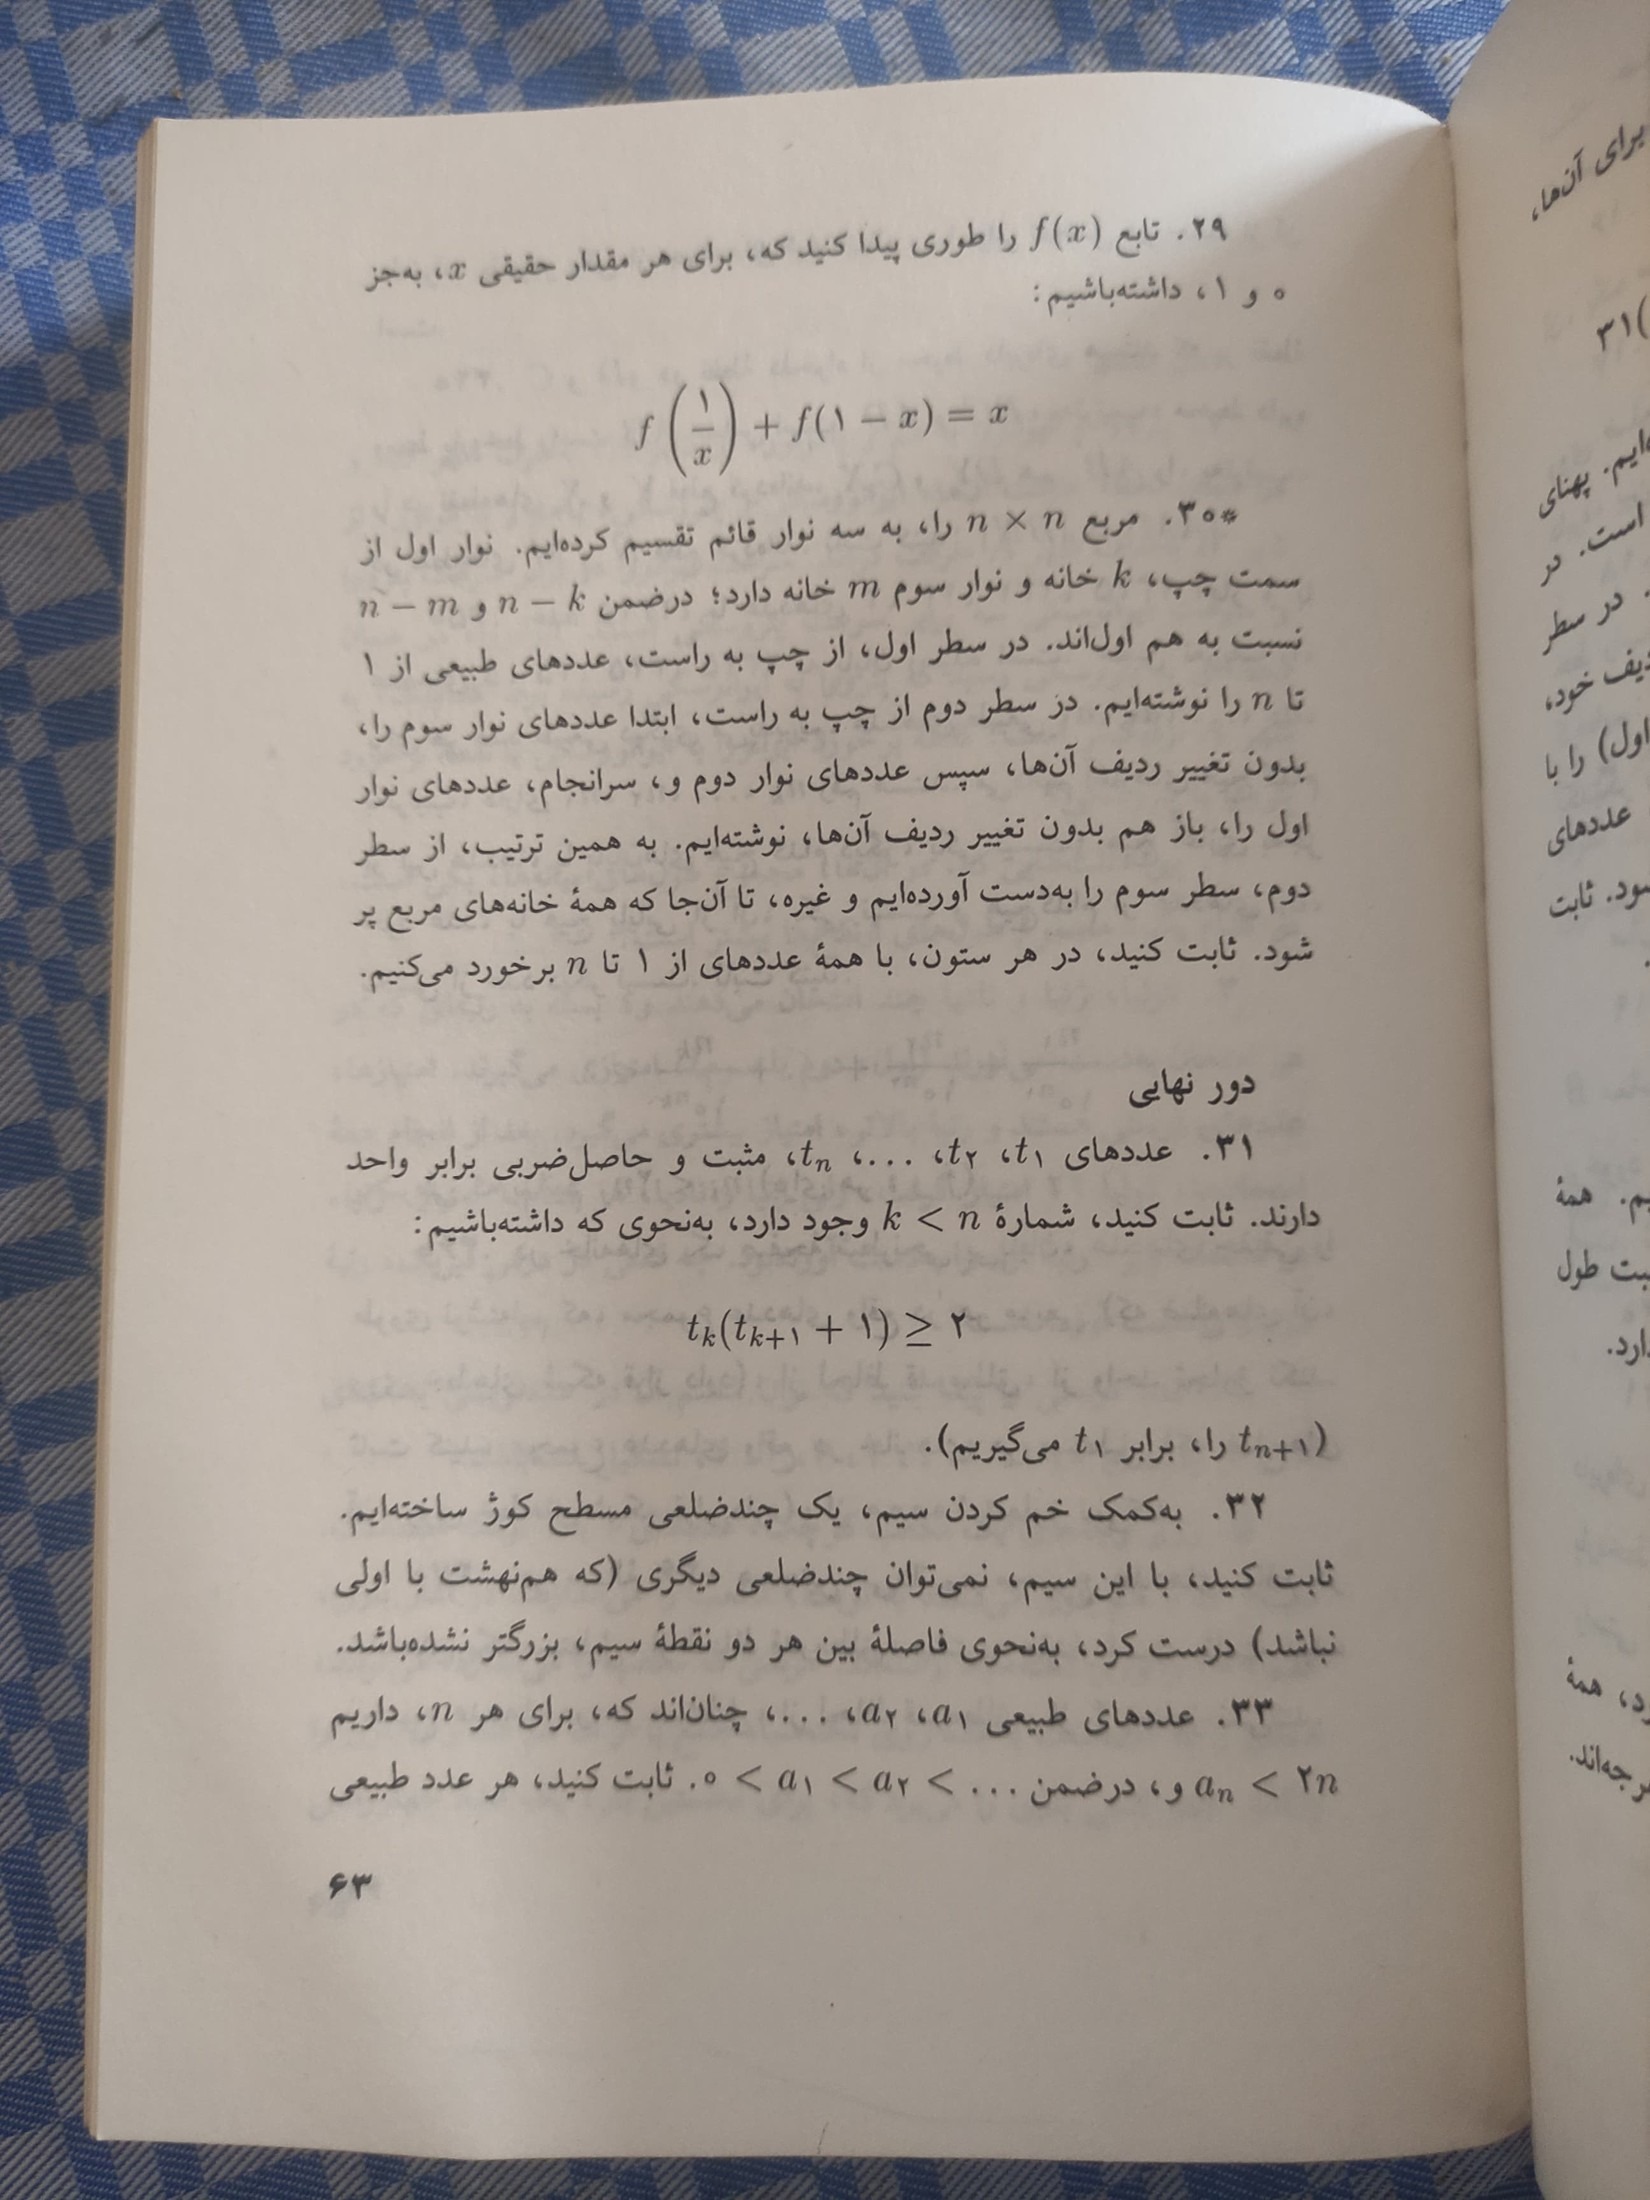 ۲۹. تابع f(x) را طوری پیدا کنید که، برای هر مقدار حقیقی x، به‌جز
۰ و ۱، داشته‌باشیم:
f(۱/x) + f(۱ − x) = x
*۳۰. مربع n × n را، به سه نوار قائم تقسیم کرده‌ایم. نوار اول از
سمت چپ، k خانه و نوار سوم m خانه دارد؛ درضمن n − k و n − m
نسبت به هم اول‌اند. در سطر اول، از چپ به راست، عددهای طبیعی از ۱
تا n را نوشته‌ایم. در سطر دوم از چپ به راست، ابتدا عددهای نوار سوم را،
بدون تغییر ردیف آن‌ها، سپس عددهای نوار دوم و، سرانجام، عددهای نوار
اول را، باز هم بدون تغییر ردیف آن‌ها، نوشته‌ایم. به همین ترتیب، از سطر
دوم، سطر سوم را به‌دست آورده‌ایم و غیره، تا آن‌جا که همهٔ خانه‌های مربع پر
شود. ثابت کنید، در هر ستون، با همهٔ عددهای از ۱ تا n برخورد می‌کنیم.
دور نهایی
۳۱. عددهای t۱، t۲، ...، tn، مثبت و حاصل‌ضربی برابر واحد
دارند. ثابت کنید، شمارهٔ k < n وجود دارد، به‌نحوی که داشته‌باشیم:
tk(tk+۱ + ۱) ≥ ۲
(tn+۱ را، برابر t۱ می‌گیریم).
۳۲. به‌کمک خم کردن سیم، یک چندضلعی مسطح کوژ ساخته‌ایم.
ثابت کنید، با این سیم، نمی‌توان چندضلعی دیگری (که هم‌نهشت با اولی
نباشد) درست کرد، به‌نحوی فاصلهٔ بین هر دو نقطهٔ سیم، بزرگتر نشده‌باشد.
۳۳. عددهای طبیعی a۱، a۲، ...، چنان‌اند که، برای هر n، داریم
an < ۲n و، درضمن ۰ < a۱ < a۲ < .... ثابت کنید، هر عدد طبیعی
۶۳
برای آن‌ها،
۳۱(
پهنای
است. در
در سطر
خود،
اول) را با
عددهای
ثابت
همهٔ
طول
همهٔ